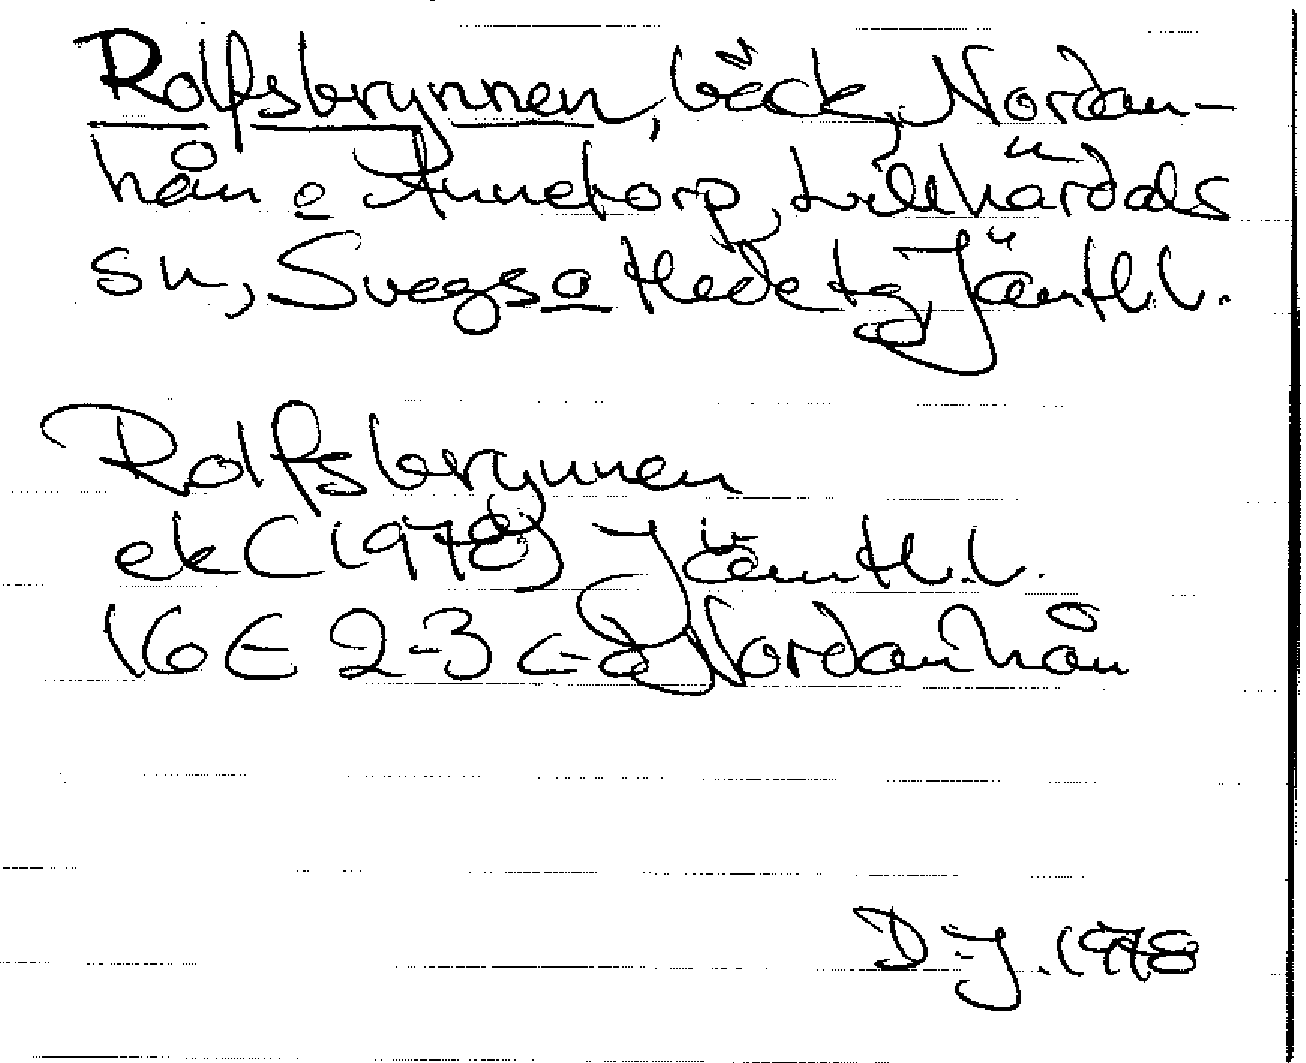 Rolfsbrynnen, bäck, Nordan-
hån o Annetorp, Lillhärdals
sn, Svegs o Hede tg, Jämtl.l.
Rolfsbrynnen
ek (1978) Jämtl.l.
16E 2-3 c-d Nordanhån
D-J. 1978